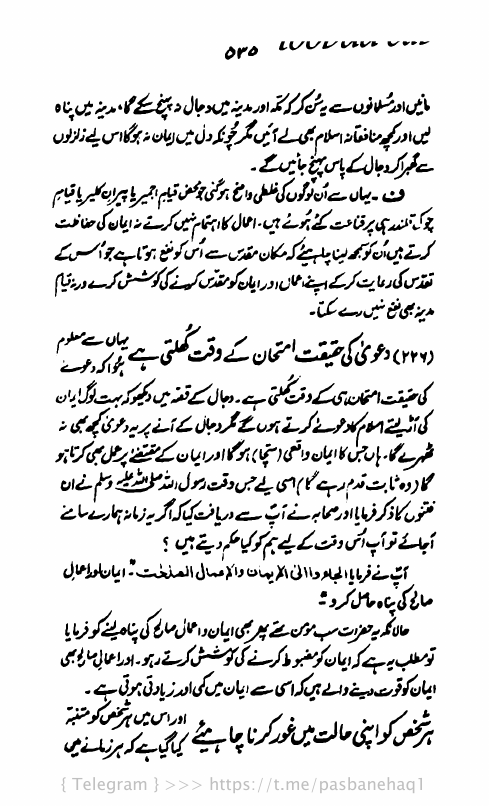 ۵۳۵
مانیں اور مسلمانوں سے یہ سُن کر کہ مکہ اور مدینہ میں دجال نہ پہنچ سکے گا، مدینہ میں پناہ
لیں اور کچھ منافقانہ اسلام بھی لے آئیں مگر چونکہ دل میں ایمان نہ ہوگا اس لیے زلزلوں
سے گھبرا کر دجال کے پاس پہنچ جائیں گے۔
ف ۔ یہاں سے اُن لوگوں کی غلطی واضح ہو گئی جو محض قیامِ اجمیر یا پیرانِ کلیر یا قیامِ
چوک قلندر ہی پر قناعت کئے ہوئے ہیں۔ اعمال کا اہتمام نہیں کرتے نہ ایمان کی حفاظت
کرتے ہیں اُن کو سمجھ لینا چاہیئے کہ مکان مقدس سے اُس کو نفع ہوتا ہے جو اُس کے
تقدس کی رعایت کر کے اپنے اعمال اور ایمان کو مقدس کرنے کی کوشش کرے ورنہ قیام
مدینہ بھی نفع نہیں دے سکتا۔
(۲۲۶) دعویٰ کی حقیقت امتحان کے وقت کُھلتی ہے یہاں سے معلوم
ہُوا کہ دعوے
کی حقیقت امتحان ہی کے وقت کُھلتی ہے۔ دجال کے قصّہ میں دیکھو کہ بہت لوگ ایمان
کی آڑ لیتے اسلام کا دعوےٰ کرتے ہوں گے مگر دجال کے آنے پر یہ دعویٰ کچھ بھی نہ
ٹھہرے گا۔ ہاں جس کا ایمان واقعی (سچا) ہوگا اور ایمان کے مقتضےٰ پر عمل بھی کرتا ہو
گا (وہ ثابت قدم رہے گا) اسی لیے جس وقت رسول اللہ صلی اللہ علیہ وسلم نے ان
فتنوں کا ذکر فرمایا اور صحابہ نے آپ سے دریافت کیا کہ اگر یہ زمانہ ہمارے سامنے
آجائے تو آپ اُس وقت کے لیے ہم کو کیا حکم دیتے ہیں ؟
آپ نے فرمایا الجاء والی الایمان والاعمال الصلحٰت" ۔ ایمان اور اعمال
صالح کی پناہ حاصل کرو"۔
حالانکہ یہ حضرات سب مؤمن تھے پھر بھی ایمان و اعمال صالح کی پناہ لینے کو فرمایا
تو مطلب یہ ہے کہ ایمان کو مضبوط کرنے کی کوشش کرتے رہو۔ اور اعمالِ صالح بھی
ایمان کو قوت دینے والے ہیں کہ اسی سے ایمان میں کمی اور زیادتی ہوتی ہے۔
ہر شخص کو اپنی حالت میں غور کرنا چاہیئے اور اس میں ہر شخص کو متنبہ
کیا گیا ہے کہ ہر زمانے میں
{ Telegram } >>> https://t.me/pasbanehaq1